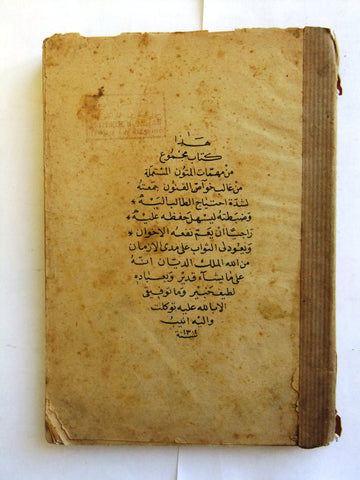 هذا
كتاب مجموع
من مهمات المتون المستملة
من غالب خواص الفنون جمعته
لشدة احتياج الطالب اليه *
وضبطته ليسهل حفظه عليه *
راجيا ان يعم نفعه الاخوان *
ويعود لى الثواب على مدى الازمان
من الله الملك الديان انه
على ما يشآء قدير وبعباده
لطيف خبير وما توفيقى
الا بالله عليه توكلت
واليه انيب
سنة